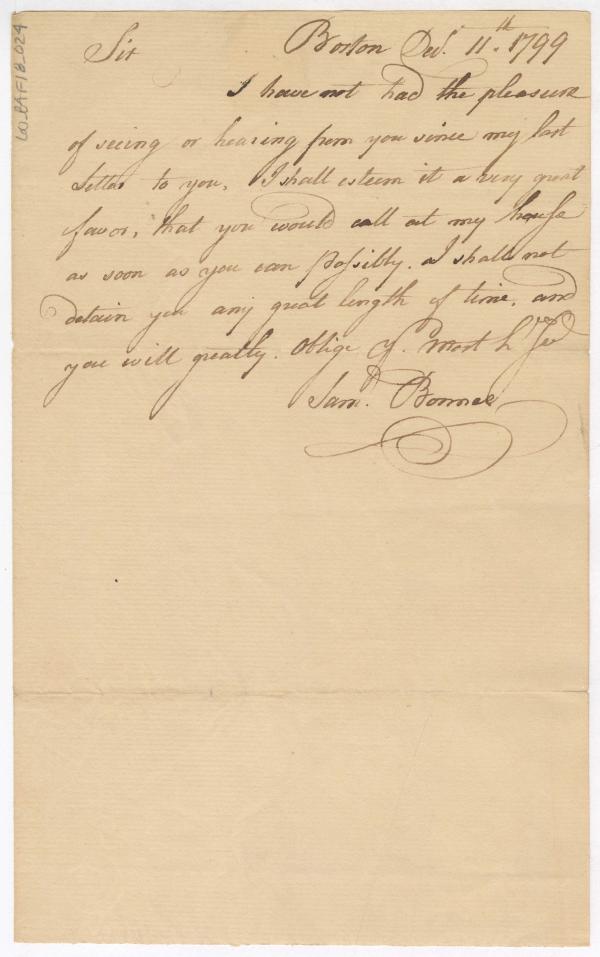 Sir Boston Dec.r 11.th 1799
I have not had the pleasure
of seeing or hearing from you since my last
Letter to you, I shall esteem it a very great
favor, that you would call at my house
as soon as you can possibly. I shall not
detain you any great length of time, and
you will greatly. Oblige y.r most h Ser
Sam.l